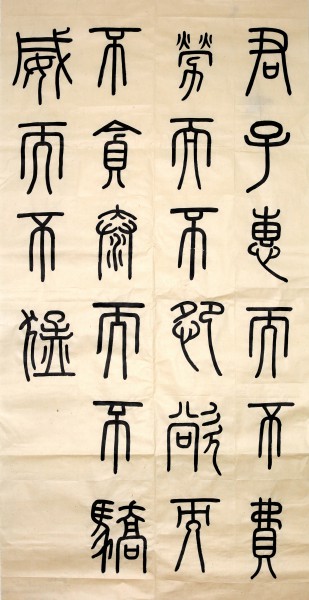 君子惠而不費
勞而不怨欲而
不貪泰而不驕
威而不猛